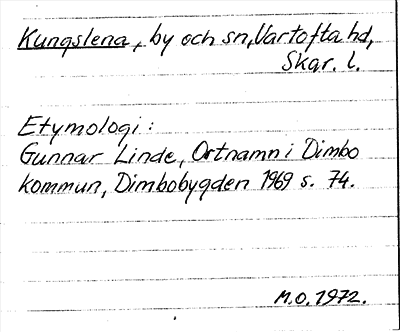 Kungslena, by och sn, Vartofta hd,
Skar. l.
Etymologi:
Gunnar Linde, Ortnamn i Dimbo
kommun, Dimbobygden 1969 s. 74.
M.O. 1972.